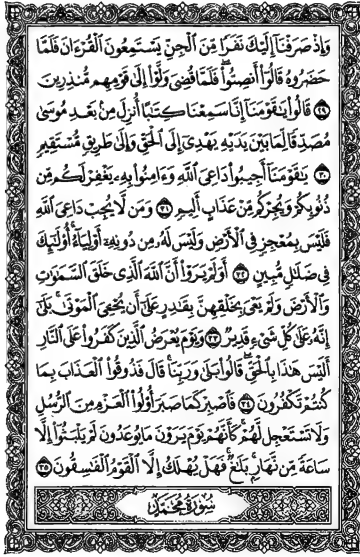 وَإِذْ صَرَفْنَآ إِلَيْكَ نَفَرًا مِّنَ ٱلْجِنِّ يَسْتَمِعُونَ ٱلْقُرْءَانَ فَلَمَّا
حَضَرُوهُ قَالُوٓا۟ أَنصِتُوا۟ ۖ فَلَمَّا قُضِىَ وَلَّوْا۟ إِلَىٰ قَوْمِهِم مُّنذِرِينَ
٢٩ قَالُوا۟ يَٰقَوْمَنَآ إِنَّا سَمِعْنَا كِتَٰبًا أُنزِلَ مِنۢ بَعْدِ مُوسَىٰ
مُصَدِّقًا لِّمَا بَيْنَ يَدَيْهِ يَهْدِىٓ إِلَى ٱلْحَقِّ وَإِلَىٰ طَرِيقٍ مُّسْتَقِيمٍ
٣٠ يَٰقَوْمَنَآ أَجِيبُوا۟ دَاعِىَ ٱللَّهِ وَءَامِنُوا۟ بِهِۦ يَغْفِرْ لَكُم مِّن
ذُنُوبِكُمْ وَيُجِرْكُم مِّنْ عَذَابٍ أَلِيمٍ ٣١ وَمَن لَّا يُجِبْ دَاعِىَ ٱللَّهِ
فَلَيْسَ بِمُعْجِزٍ فِى ٱلْأَرْضِ وَلَيْسَ لَهُۥ مِن دُونِهِۦٓ أَوْلِيَآءُ ۚ أُو۟لَٰٓئِكَ
فِى ضَلَٰلٍ مُّبِينٍ ٣٢ أَوَلَمْ يَرَوْا۟ أَنَّ ٱللَّهَ ٱلَّذِى خَلَقَ ٱلسَّمَٰوَٰتِ
وَٱلْأَرْضَ وَلَمْ يَعْىَ بِخَلْقِهِنَّ بِقَٰدِرٍ عَلَىٰٓ أَن يُحْـِۧىَ ٱلْمَوْتَىٰ ۚ بَلَىٰٓ
إِنَّهُۥ عَلَىٰ كُلِّ شَىْءٍ قَدِيرٌ ٣٣ وَيَوْمَ يُعْرَضُ ٱلَّذِينَ كَفَرُوا۟ عَلَى ٱلنَّارِ
أَلَيْسَ هَٰذَا بِٱلْحَقِّ ۖ قَالُوا۟ بَلَىٰ وَرَبِّنَا ۚ قَالَ فَذُوقُوا۟ ٱلْعَذَابَ بِمَا
كُنتُمْ تَكْفُرُونَ ٣٤ فَٱصْبِرْ كَمَا صَبَرَ أُو۟لُوا۟ ٱلْعَزْمِ مِنَ ٱلرُّسُلِ
وَلَا تَسْتَعْجِل لَّهُمْ ۚ كَأَنَّهُمْ يَوْمَ يَرَوْنَ مَا يُوعَدُونَ لَمْ يَلْبَثُوٓا۟ إِلَّا
سَاعَةً مِّن نَّهَارٍۭ ۚ بَلَٰغٌ ۚ فَهَلْ يُهْلَكُ إِلَّا ٱلْقَوْمُ ٱلْفَٰسِقُونَ ٣٥
سُورَةُ مُحَمَّدٍ